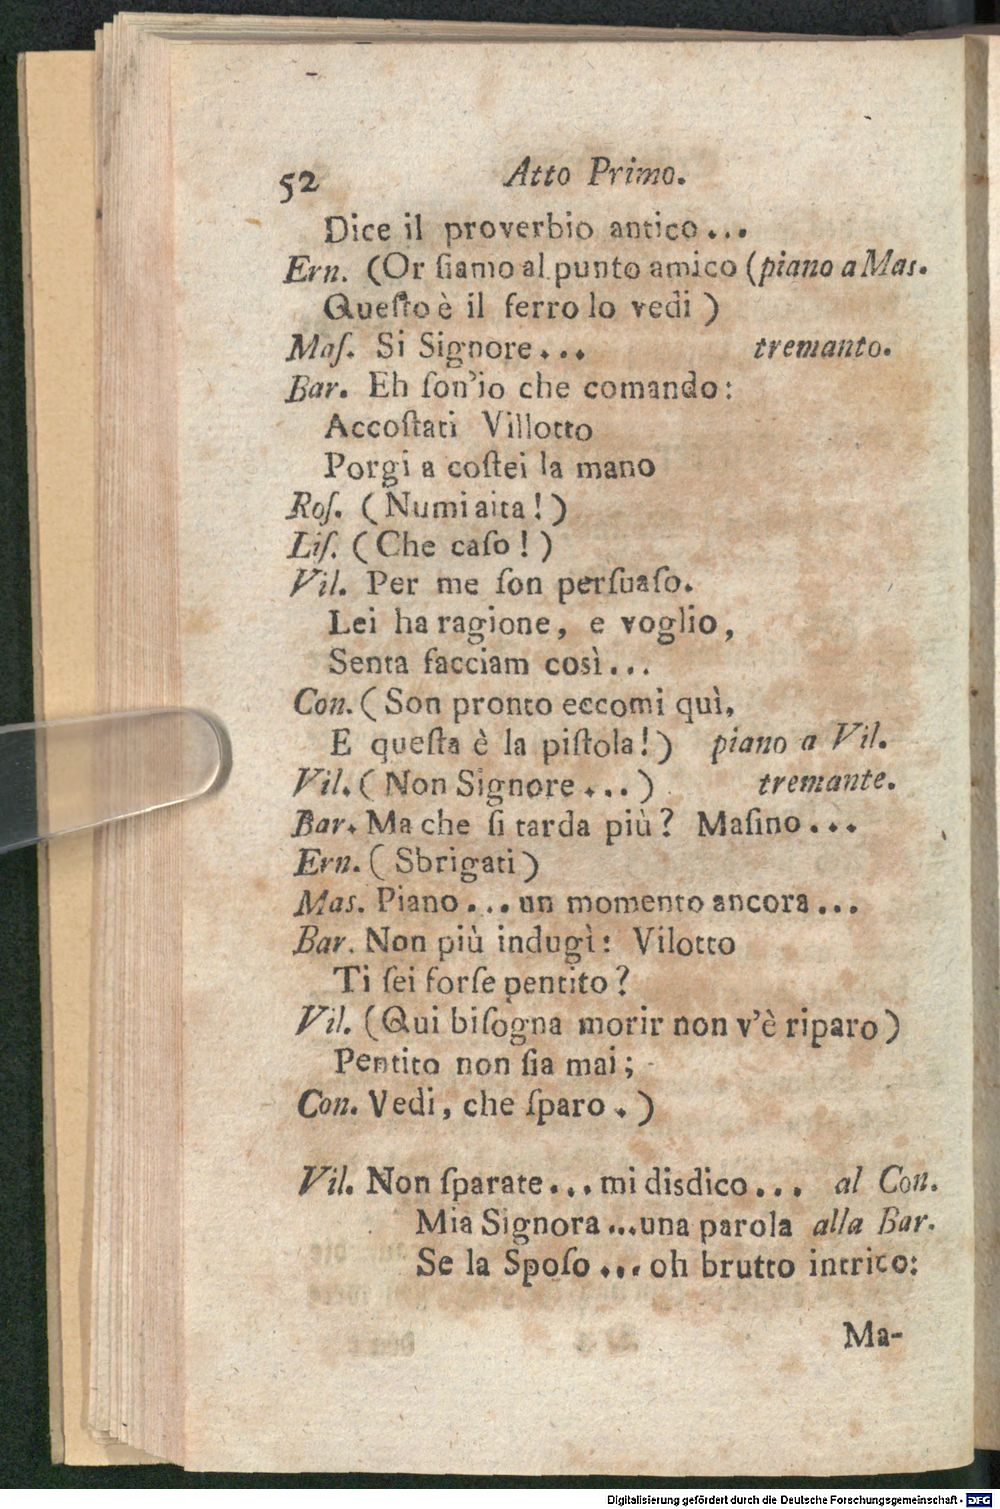 52 Atto Primo.
Dice il proverbio antico...
Ern. (Or ſiamo al punto amico (piano a Mas.
Queſto è il ferro lo vedi)
Maſ. Si Signore... tremanto.
Bar. Eh ſon'io che comando:
Accoſtati Villotto
Porgi a coſtei la mano
Roſ. (Numi aita!)
Liſ. (Che caſo!)
Vil. Per me ſon perſuaſo.
Lei ha ragione, e voglio,
Senta facciam così...
Con. (Son pronto eccomi quì,
E queſta è la piſtola!) piano a Vil.
Vil. (Non Signore...) tremante.
Bar. Ma che ſi tarda più? Maſino...
Ern. (Sbrigati)
Mas. Piano...un momento ancora...
Bar. Non più indugì: Vilotto
Ti ſei forſe pentito?
Vil. (Qui biſogna morir non v'è riparo)
Pentito non ſia mai;
Con. Vedi, che ſparo.)
Vil. Non ſparate...mi disdico... al Con.
Mia Signora...una parola alla Bar.
Se la Spoſo...oh brutto intrico:
Ma-
Digitalisierung gefördert durch die Deutsche Forschungsgemeinschaft - DFG